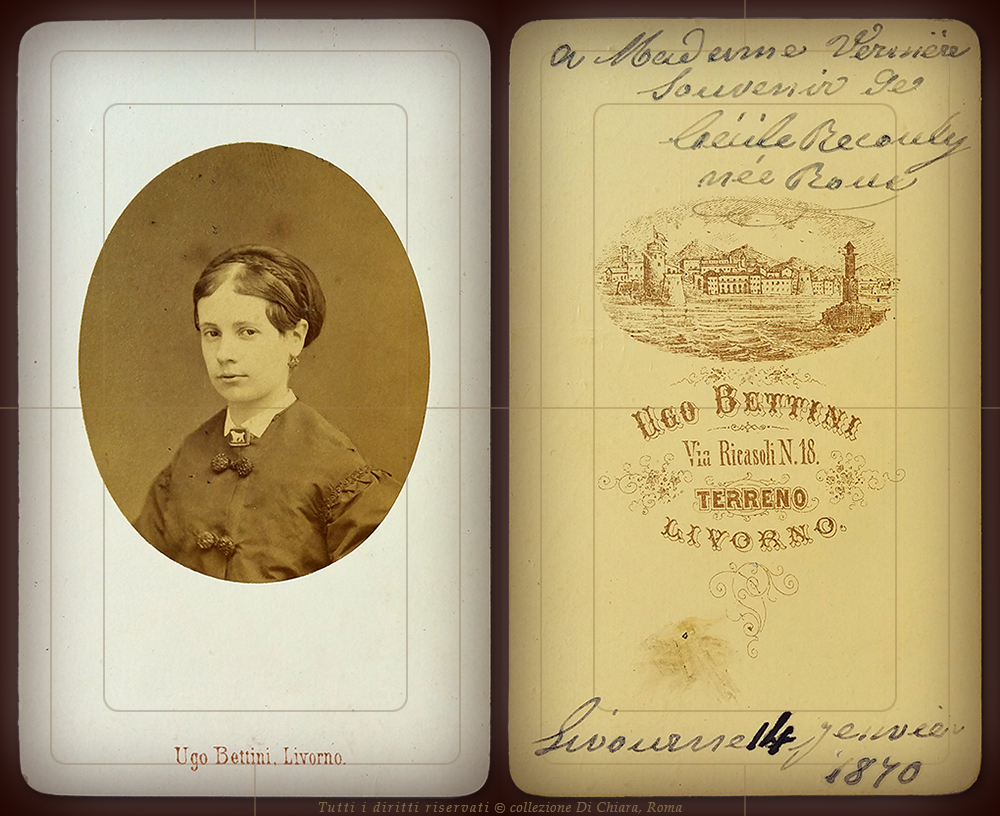 Ugo Bettini, Livorno.
a Madame Vernière
Souvenir de
Cécile Recouly
née Roux
UGO BETTINI
Via Ricasoli N. 18.
TERRENO
LIVORNO.
Livourne 14 Janvier
1870
Tutti i diritti riservati © collezione Di Chiara, Roma